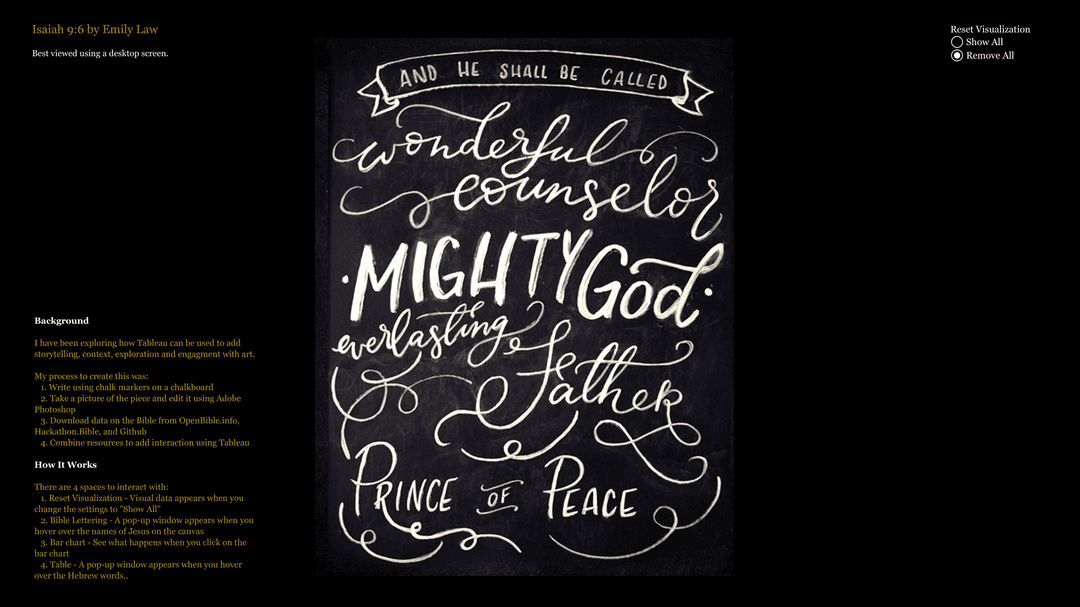 Isaiah 9:6 by Emily Law
Best viewed using a desktop screen.
Reset Visualization
Show All
Remove All
AND HE SHALL BE CALLED
wonderful
counselor
·MIGHTY God·
everlasting
father
PRINCE OF PEACE
Background
I have been exploring how Tableau can be used to add
storytelling, context, exploration and engagment with art.
My process to create this was:
1. Write using chalk markers on a chalkboard
2. Take a picture of the piece and edit it using Adobe
Photoshop
3. Download data on the Bible from OpenBible.info,
Hackathon.Bible, and Github
4. Combine resources to add interaction using Tableau
How It Works
There are 4 spaces to interact with:
1. Reset Visualization - Visual data appears when you
change the settings to "Show All"
2. Bible Lettering - A pop-up window appears when you
hover over the names of Jesus on the canvas
3. Bar chart - See what happens when you click on the
bar chart
4. Table - A pop-up window appears when you hover
over the Hebrew words..